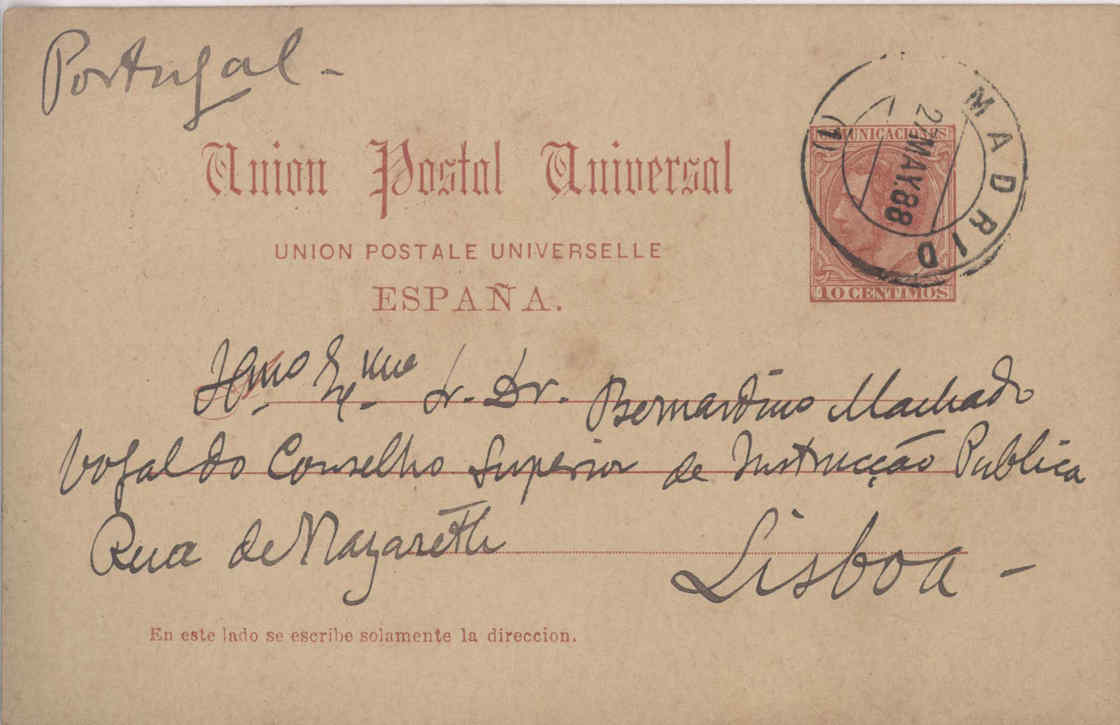 Portugal -
Union Postal Universal
UNION POSTALE UNIVERSELLE
ESPAÑA.
COMUNICACIONES
10 CENTIMOS
MADRID
27 MAY 88
(1)
Illmo Exmo Sr. Dr. Bernardino Machado
Vogal do Conselho Superior de Instrucção Publica
Rua de Nazareth
Lisboa -
En este lado se escribe solamente la direccion.